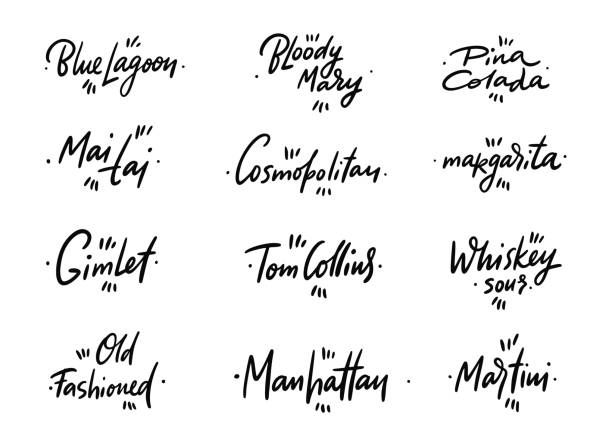 Blue Lagoon
Bloody
Mary
Pina
Colada
Mai
tai
Cosmopolitan
makgarita
Gimlet
Tom Collins
Whiskey
sour
Old
Fashioned
Manhattan
Martini